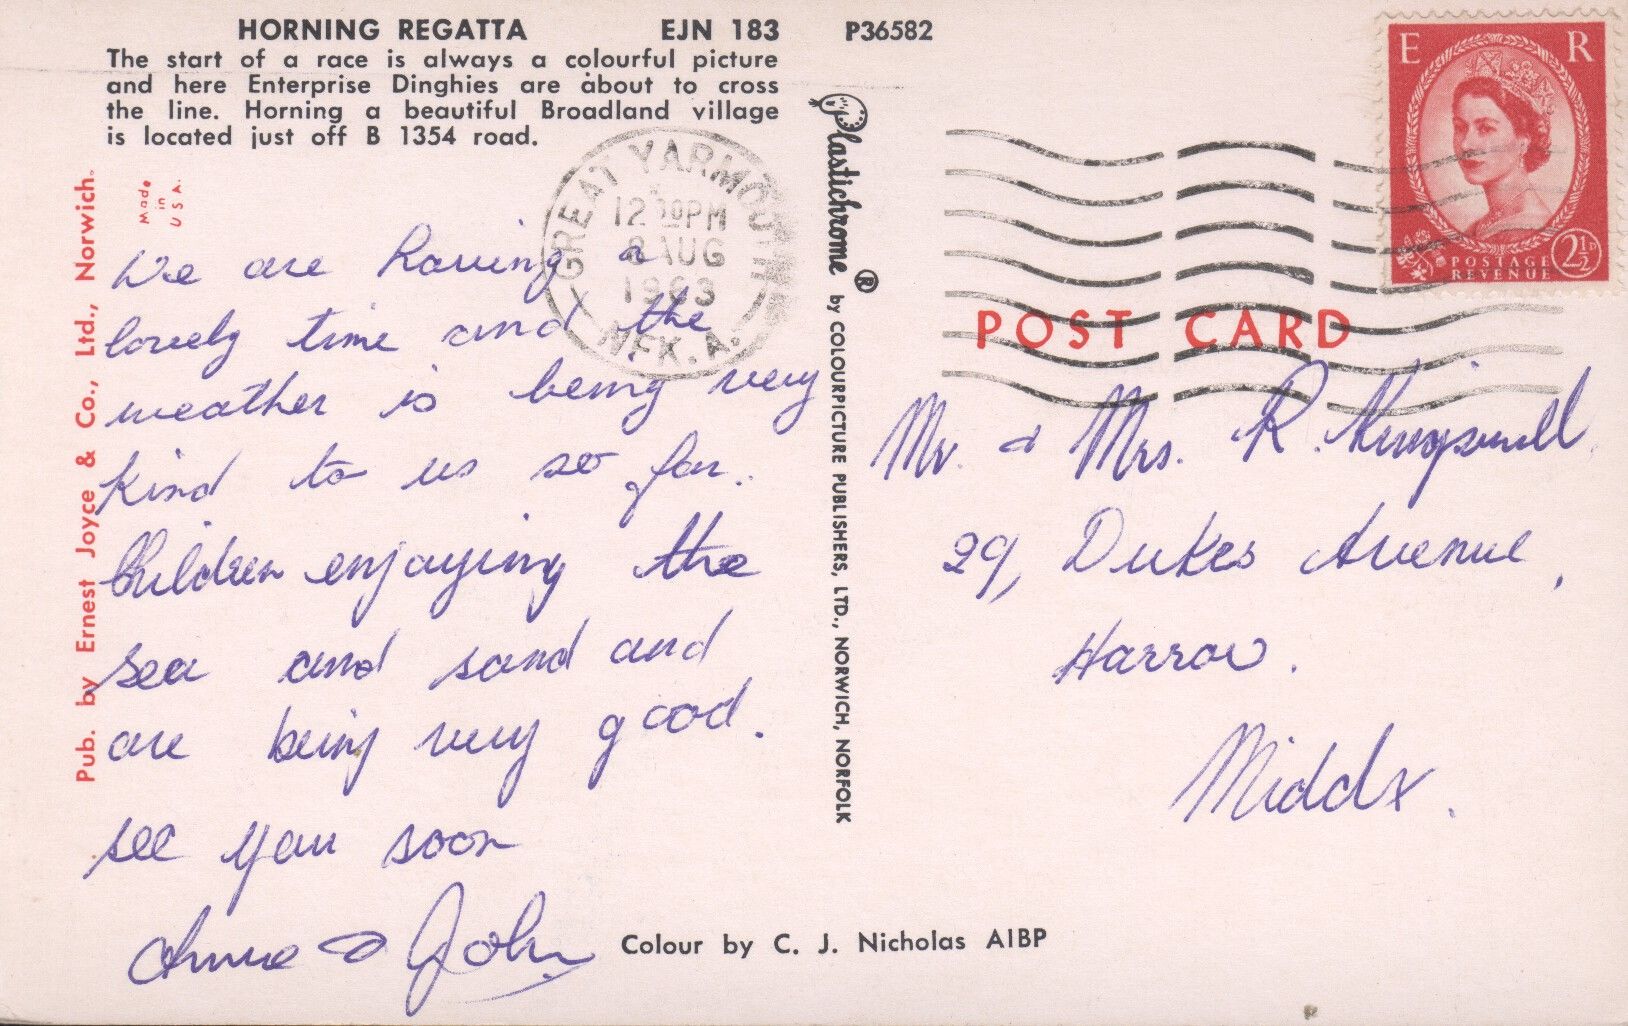 HORNING REGATTA EJN 183 P36582
The start of a race is always a colourful picture
and here Enterprise Dinghies are about to cross
the line. Horning a beautiful Broadland village
is located just off B 1354 road.
Pub. by Ernest Joyce & Co., Ltd., Norwich.
Made
in
U.S.A.
GREAT YARMOUTH
12 30PM
8 AUG
1963
NFK. A.
We are having a
lovely time and the
weather is being very
kind to us so far.
Children enjoying the
sea and sand and
are being very good.
see you soon
Anne & John
Colour by C. J. Nicholas AIBP
Plastichrome ® by COLOURPICTURE PUBLISHERS, LTD., NORWICH, NORFOLK
E R
POSTAGE
REVENUE
2½D
POST CARD
Mr. & Mrs. R.
29, Dukes Avenue,
Harrow.
Middx.